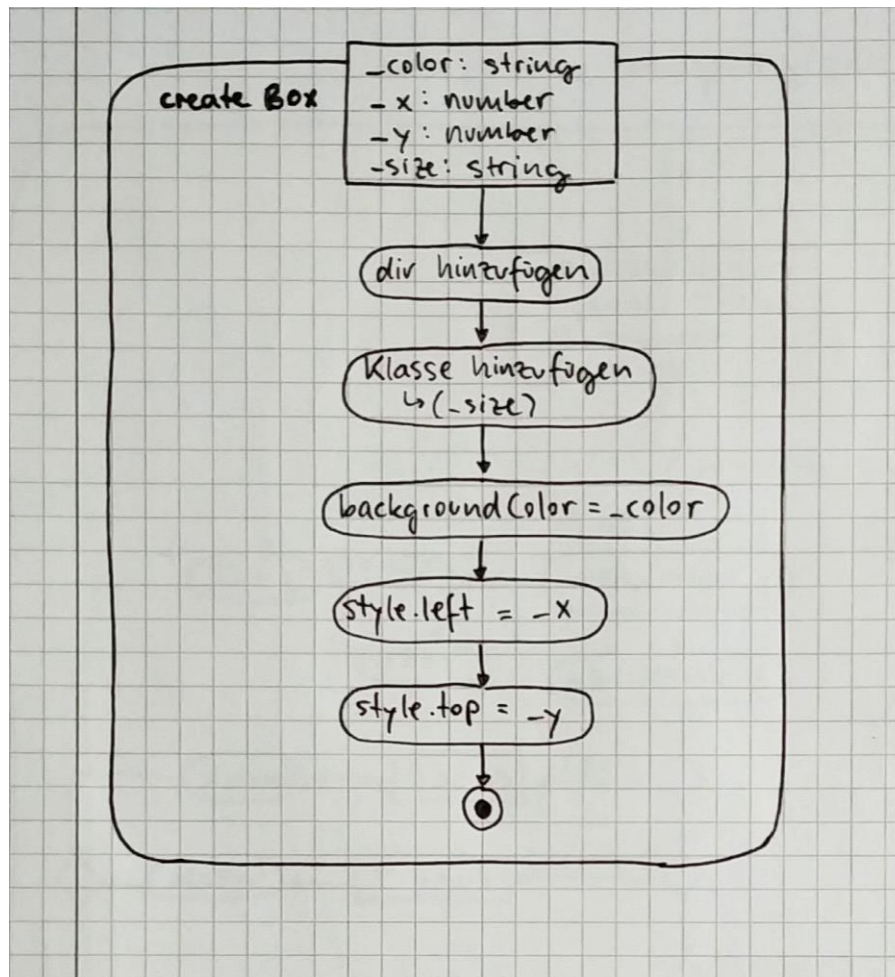 create Box
_color: string
_x: number
_y: number
_size: string
div hinzufügen
Klasse hinzufügen
↳(_size)
backgroundColor = _color
style.left = _x
style.top = _y